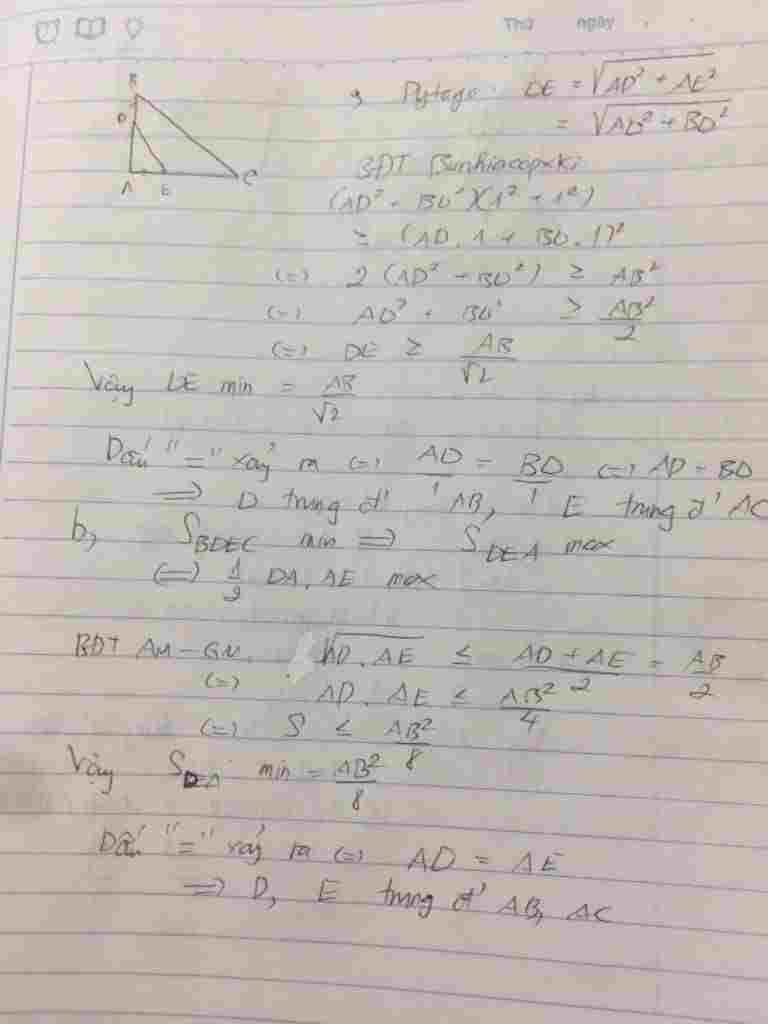 Thứ ngày
B
D
A E C
a, Pytago: DE = √(AD² + AE²)
= √(AD² + BD²)
BĐT Bunhiacopxki
(AD² + BD²)(1² + 1²)
≥ (AD.1 + BD.1)²
(=) 2(AD² + BD²) ≥ AB²
(=) AD² + BD² ≥ AB²/2
(=) DE ≥ AB/√2
Vậy DE min = AB/√2
Dấu "=" xảy ra (=) AD/1 = BD/1 (=) AD = BD
=> D trung đ' AB, E trung đ' AC
b, S_BDEC min => S_DEA max
(=) 1/2 DA.AE max
BĐT AM-GM. √(AD.AE) ≤ (AD + AE)/2 = AB/2
(=) AD.AE ≤ AB²/4
(=) S ≤ AB²/8
Vậy S_DEA min = AB²/8
Dấu "=" xảy ra (=) AD = AE
=> D, E trung đ' AB, AC